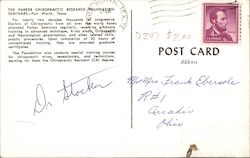 THE PARKER CHIROPRACTIC RESEARCH FOUNDATION
SEMINARS—Fort Worth, Texas
For nearly two decades thousands of progressive
Doctors of Chiropractic from all over the world have
attended Parker Seminars regularly, receiving graduate
training in advanced technique, X-ray study, Chiropractic
and Neurological examination, and other related chiro-
practic procedures. Upon completion of 32 hours of
specialized training, they are awarded graduate
certificates.
The Foundation also conducts special training courses
for chiropractic wives, receptionists, and technicians,
earning for them the Chiropractic Assistant (CA) degree.
Dr. Hocker
0247 $2.00
4¢
POST CARD
Address
Mr Mrs. Frank Ebersole
R#1
Arcadia
Ohio